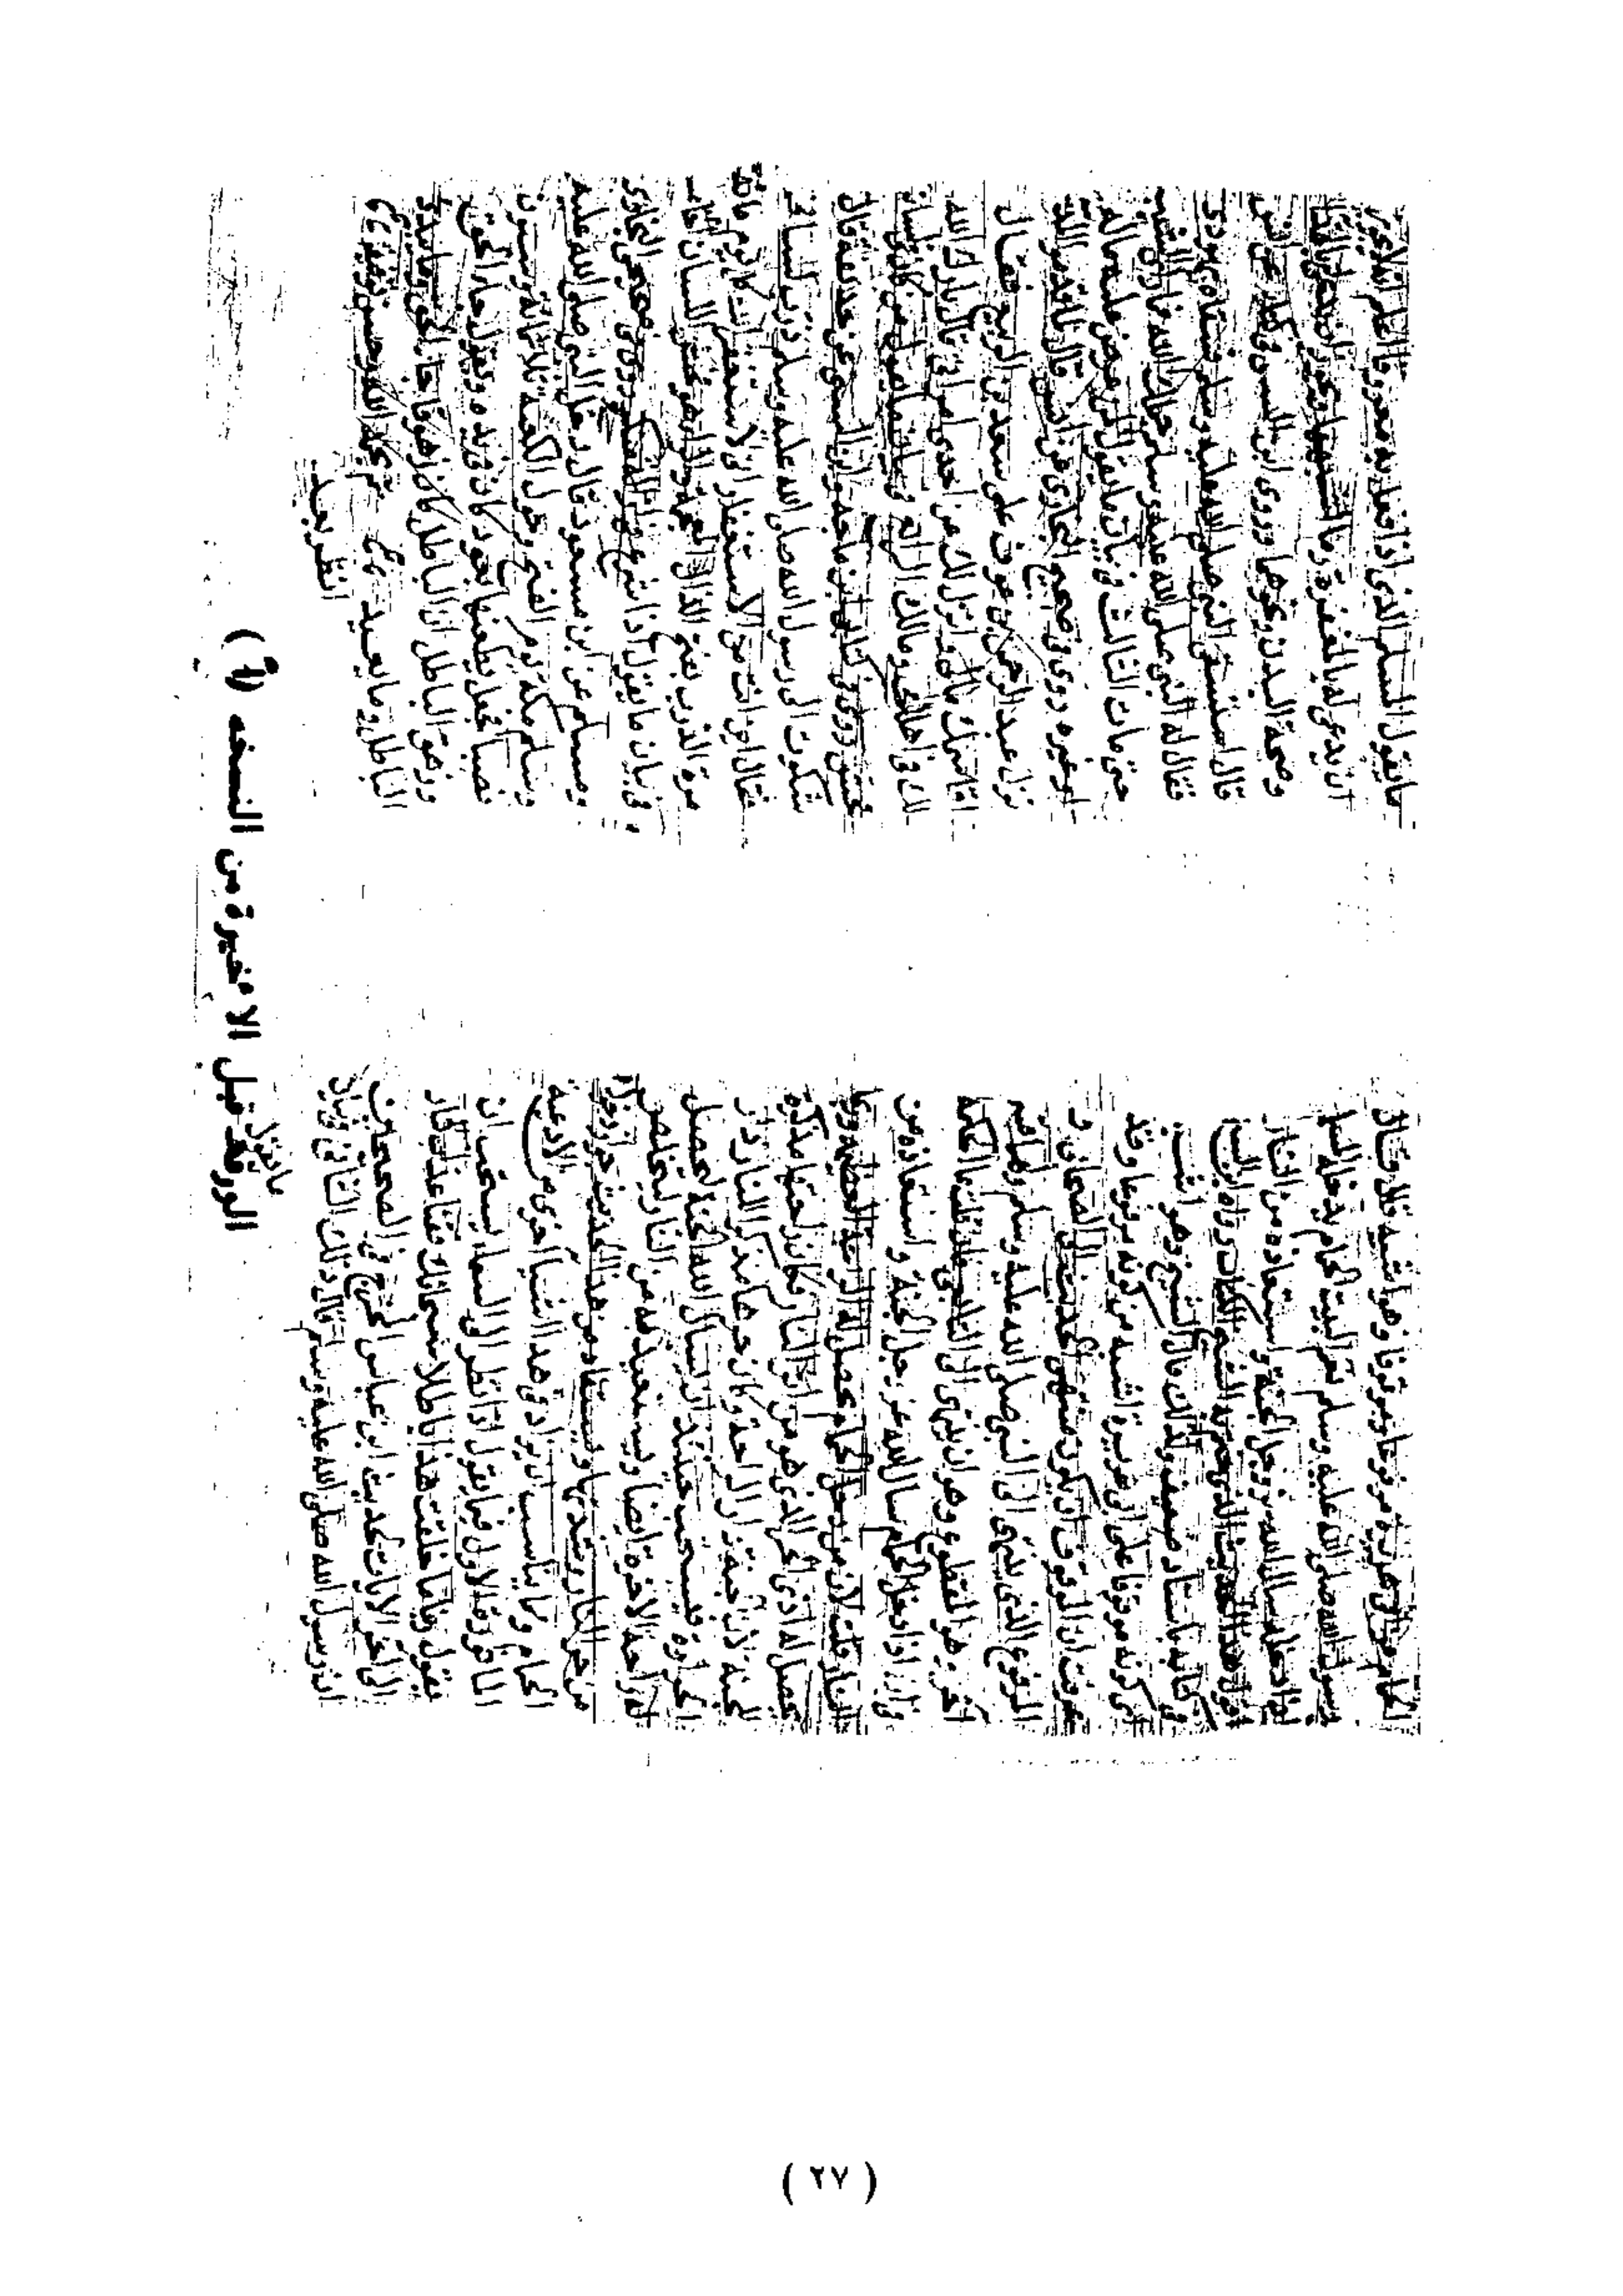 الحمام عن ابي هريرة مرفوعا وموقوفا وهو اشبه قال وقال
رسول الله صلى الله عليه وسلم نعم البيت الحمام يدخله المسلم
اذا دخله سال الله عز وجل الجنة واستعاذه من النار
هذا الحديث الذي الشيخ في الكتاب رواه ابن السني
في كتابه باسناد ضعيف ولذلك قال الشيخ وهو اشبه
اي كونه موقوفا على ابي هريرة اشبه من كونه مرفوعا وقد
عرفت ان الموقوف ان يكون منتهى الحديث الى الصحابي و
المرفوع الذي ينتهي الى النبي صلى الله عليه وسلم
اخر وهو المقطوع وهو ان ينتهي الى التابعي فان قلت ما الحكمة
في ان اذا دخل الحمام سال الله عز وجل الجنة واستعاذه من
النار قلت لان من دخل الحمام يحصل له الراحة العظيمة
يحصل له اذى الحر الذي هو من اثر النار فكان راحتها مذكرة
للجنة لان الجنة دار الراحة وكان حرها مذكر النار دار
الحرارة فيستحب حينئذ ان يسال الله الجنة ليحصل
له راحة الاخرة ايضا ويستعيذه من النار ليتخلص
من حر النار وشدتها ويستفاد من هذا الحديث جواز دخول
الحمام ومما يناسب ان يزاد في هذا اشيا اخرى من الادعية
الماثورة الاول فيما يقول اذا نظر الى السماء يستحب ان
يقول ربنا ما خلقت هذا باطلا سبحانك فقنا عذاب النار
الى اخر الايات لحديث ابن عباس المخرج في الصحيحين
ان رسول الله صلى الله عليه وسلم قال ذلك الثاني في بيان
ما يقول
ما يقول المسلم الذي اذا فعل به معروفا
ان يدعى له بالمغفرة وما اشبهها ويجوز ان يدعى
وصحة البدن ونحوها وروى ابن السني عن انس
قال استسقى النبي صلى الله عليه وسلم فسقاه يهودي
فقال له النبي صلى الله عليه وسلم جملك الله
حتى مات الثالث في بيان ما يقول لمن عرض عليه ماله
او غيره روى في صحيح البخاري عن انس قال لما قدموا المدينة
نزل عبد الرحمن بن عوف على سعد بن الربيع فقال
اقاسمك مالي وانزل لك عن احدى امراتي قال بارك الله
لك في اهلك ومالك الرابع
روى في كتاب ابن ماجه وابن السني عن حذيفة قال
شكوت الى رسول الله صلى الله عليه وسلم ذرب لساني
فقال اين انت من الاستغفار اني لاستغفر الله كل يوم مائة
مرة الذرب بفتح الذال المعجمة والراء هو فحش اللسان
في بيان ما يقول اذا شرع في ازالة منكر روى في صحيحي البخاري
ومسلم عن ابن مسعود قال دخل النبي صلى الله عليه
وسلم مكة يوم الفتح وحول الكعبة ثلاثمائة وستون
نصبا فجعل يطعنها بعود كان في يده ويقول جاء الحق
وزهق الباطل ان الباطل كان زهوقا جاء الحق وما يبدي
الباطل وما يعيد تم بحمد الله وحسن توفيقه
الورقة قبل الاخيرة من النسخة (أ)
(٢٧)